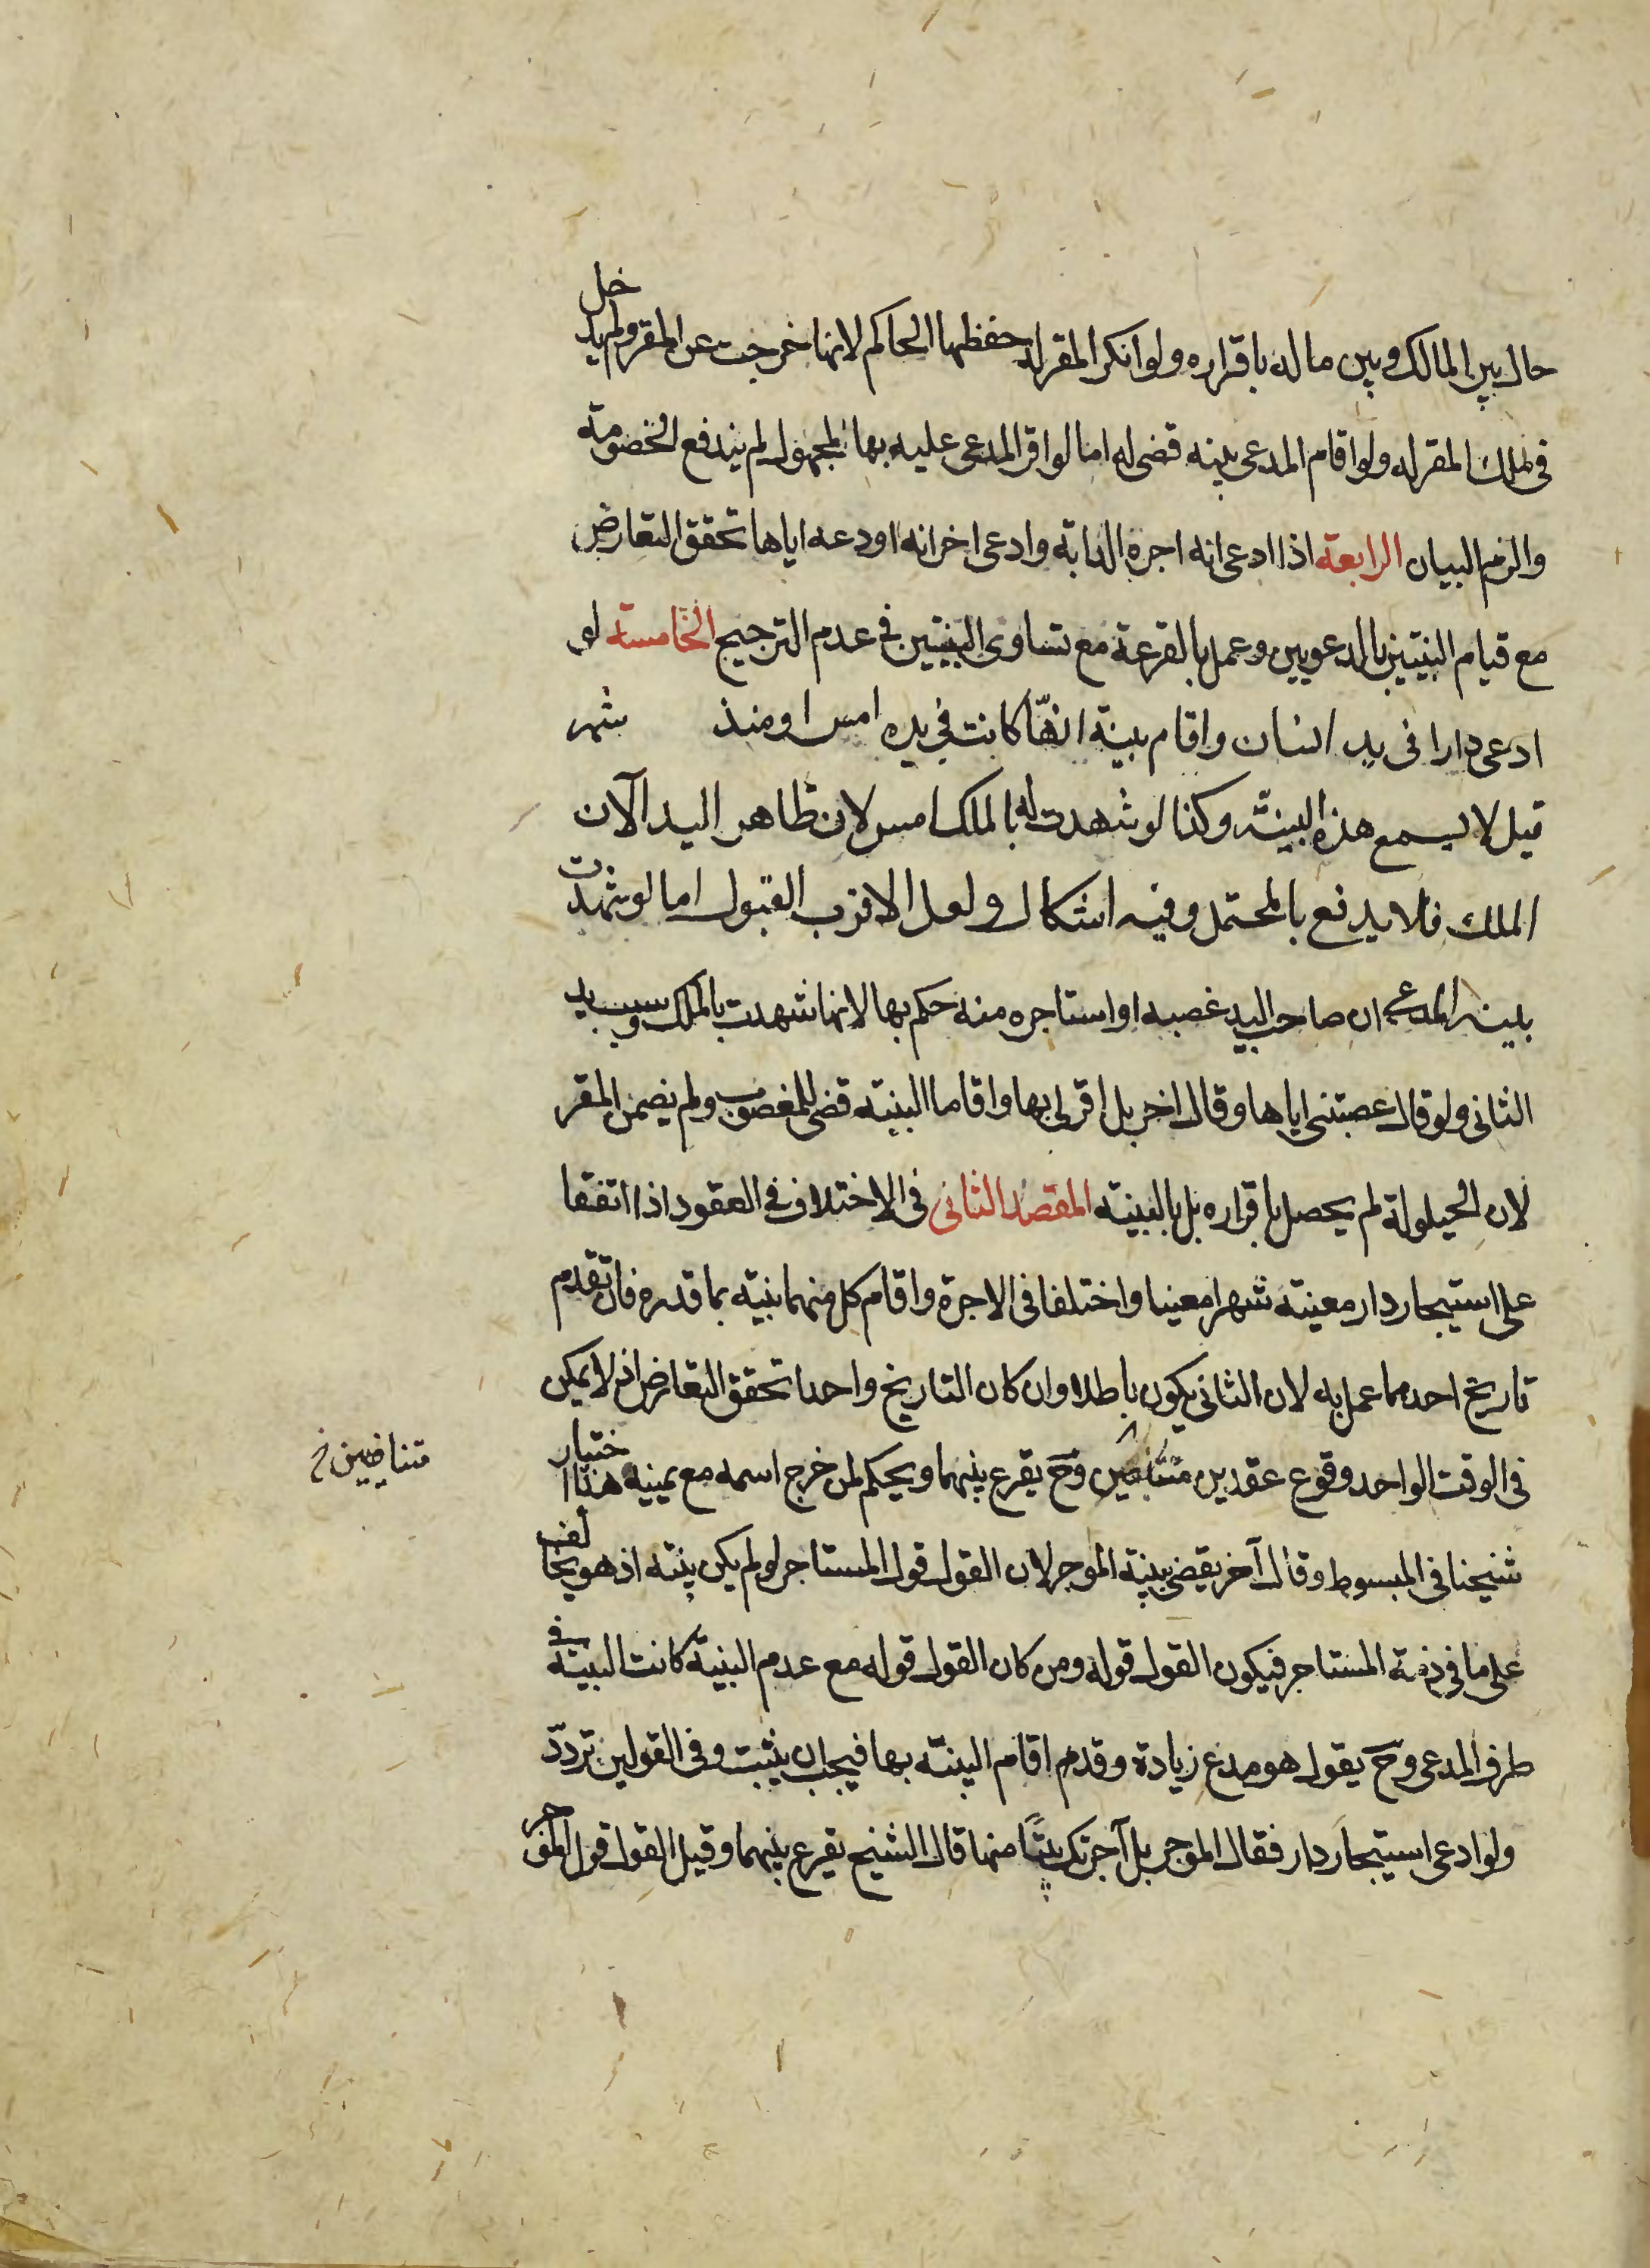 حال بين المالك وبين ماله باقراره ولو انكر المقر له حفظها الحاكم لانها خرجت عن المقر ولم يدخل
فى ملك المقر له ولو اقام المدعى بينه قضى له اما لو اقر المدعى عليه بها لمجهول لم يندفع الخصومة
والزم البيان الرابعة اذا ادعى انه اجره الدابة وادعى اخر انه اودعه اياها تحقق التعارض
مع قيام البينتين بالدعويين وعمل بالقرعة مع تساوى البينتين فى عدم الترجيح الخامسة لو
ادعى دارا فى يد انسان واقام بينة انها كانت فى يده امس او منذ شهر
قيل لا يسمع هذه البينة وكذا لو شهدت له بالملك امس لان ظاهر اليد الآن
الملك فلا يدفع بالمحتمل وفيه اشكال ولعل الاقرب القبول اما لو شهدت
بينه المدعى ان صاحب اليد غصبه او استاجره منه حكم بها لانها شهدت بالملك وسبب يد
الثانى ولو قال غصبتنى اياها وقال اخر بل اقر لى بها واقاما البينة قضى للمغصوب ولم يضمن المقر
لان الحيلولة لم يحصل باقراره بل بالبينة المقصد الثانى فى الاختلاف فى العقود اذا اتفقا
على استيجار دار معينة شهرا معينا واختلفا فى الاجرة واقام كل منهما بينة بما قدره فان تقدم
تاريخ احدهما عمل به لان الثانى يكون باطلا وان كان التاريخ واحدا تحقق التعارض اذ لا يمكن
فى الوقت الواحد وقوع عقدين وح يقرع بينهما ويحكم لمن خرج اسمه مع يمينه هذا اختيار
متناقضين خ
شيخنا فى المبسوط وقال آخر يقضى ببينة الموجر لان القول قول المستاجر لو لم يكن بينة اذ هو يخالف
على ما فى ذمة المستاجر فيكون القول قوله ومن كان القول قوله مع عدم البينة كانت البينة فى
طرف المدعى وح يقول هو مدع زيادة وقدم اقام البينة بها فيجب ان يثبت وفى القولين تردد
ولو ادعى استيجار دار فقال الموجر بل آجرتك بيتًا منها قال الشيخ يقرع بينهما وقيل القول قول الموجر